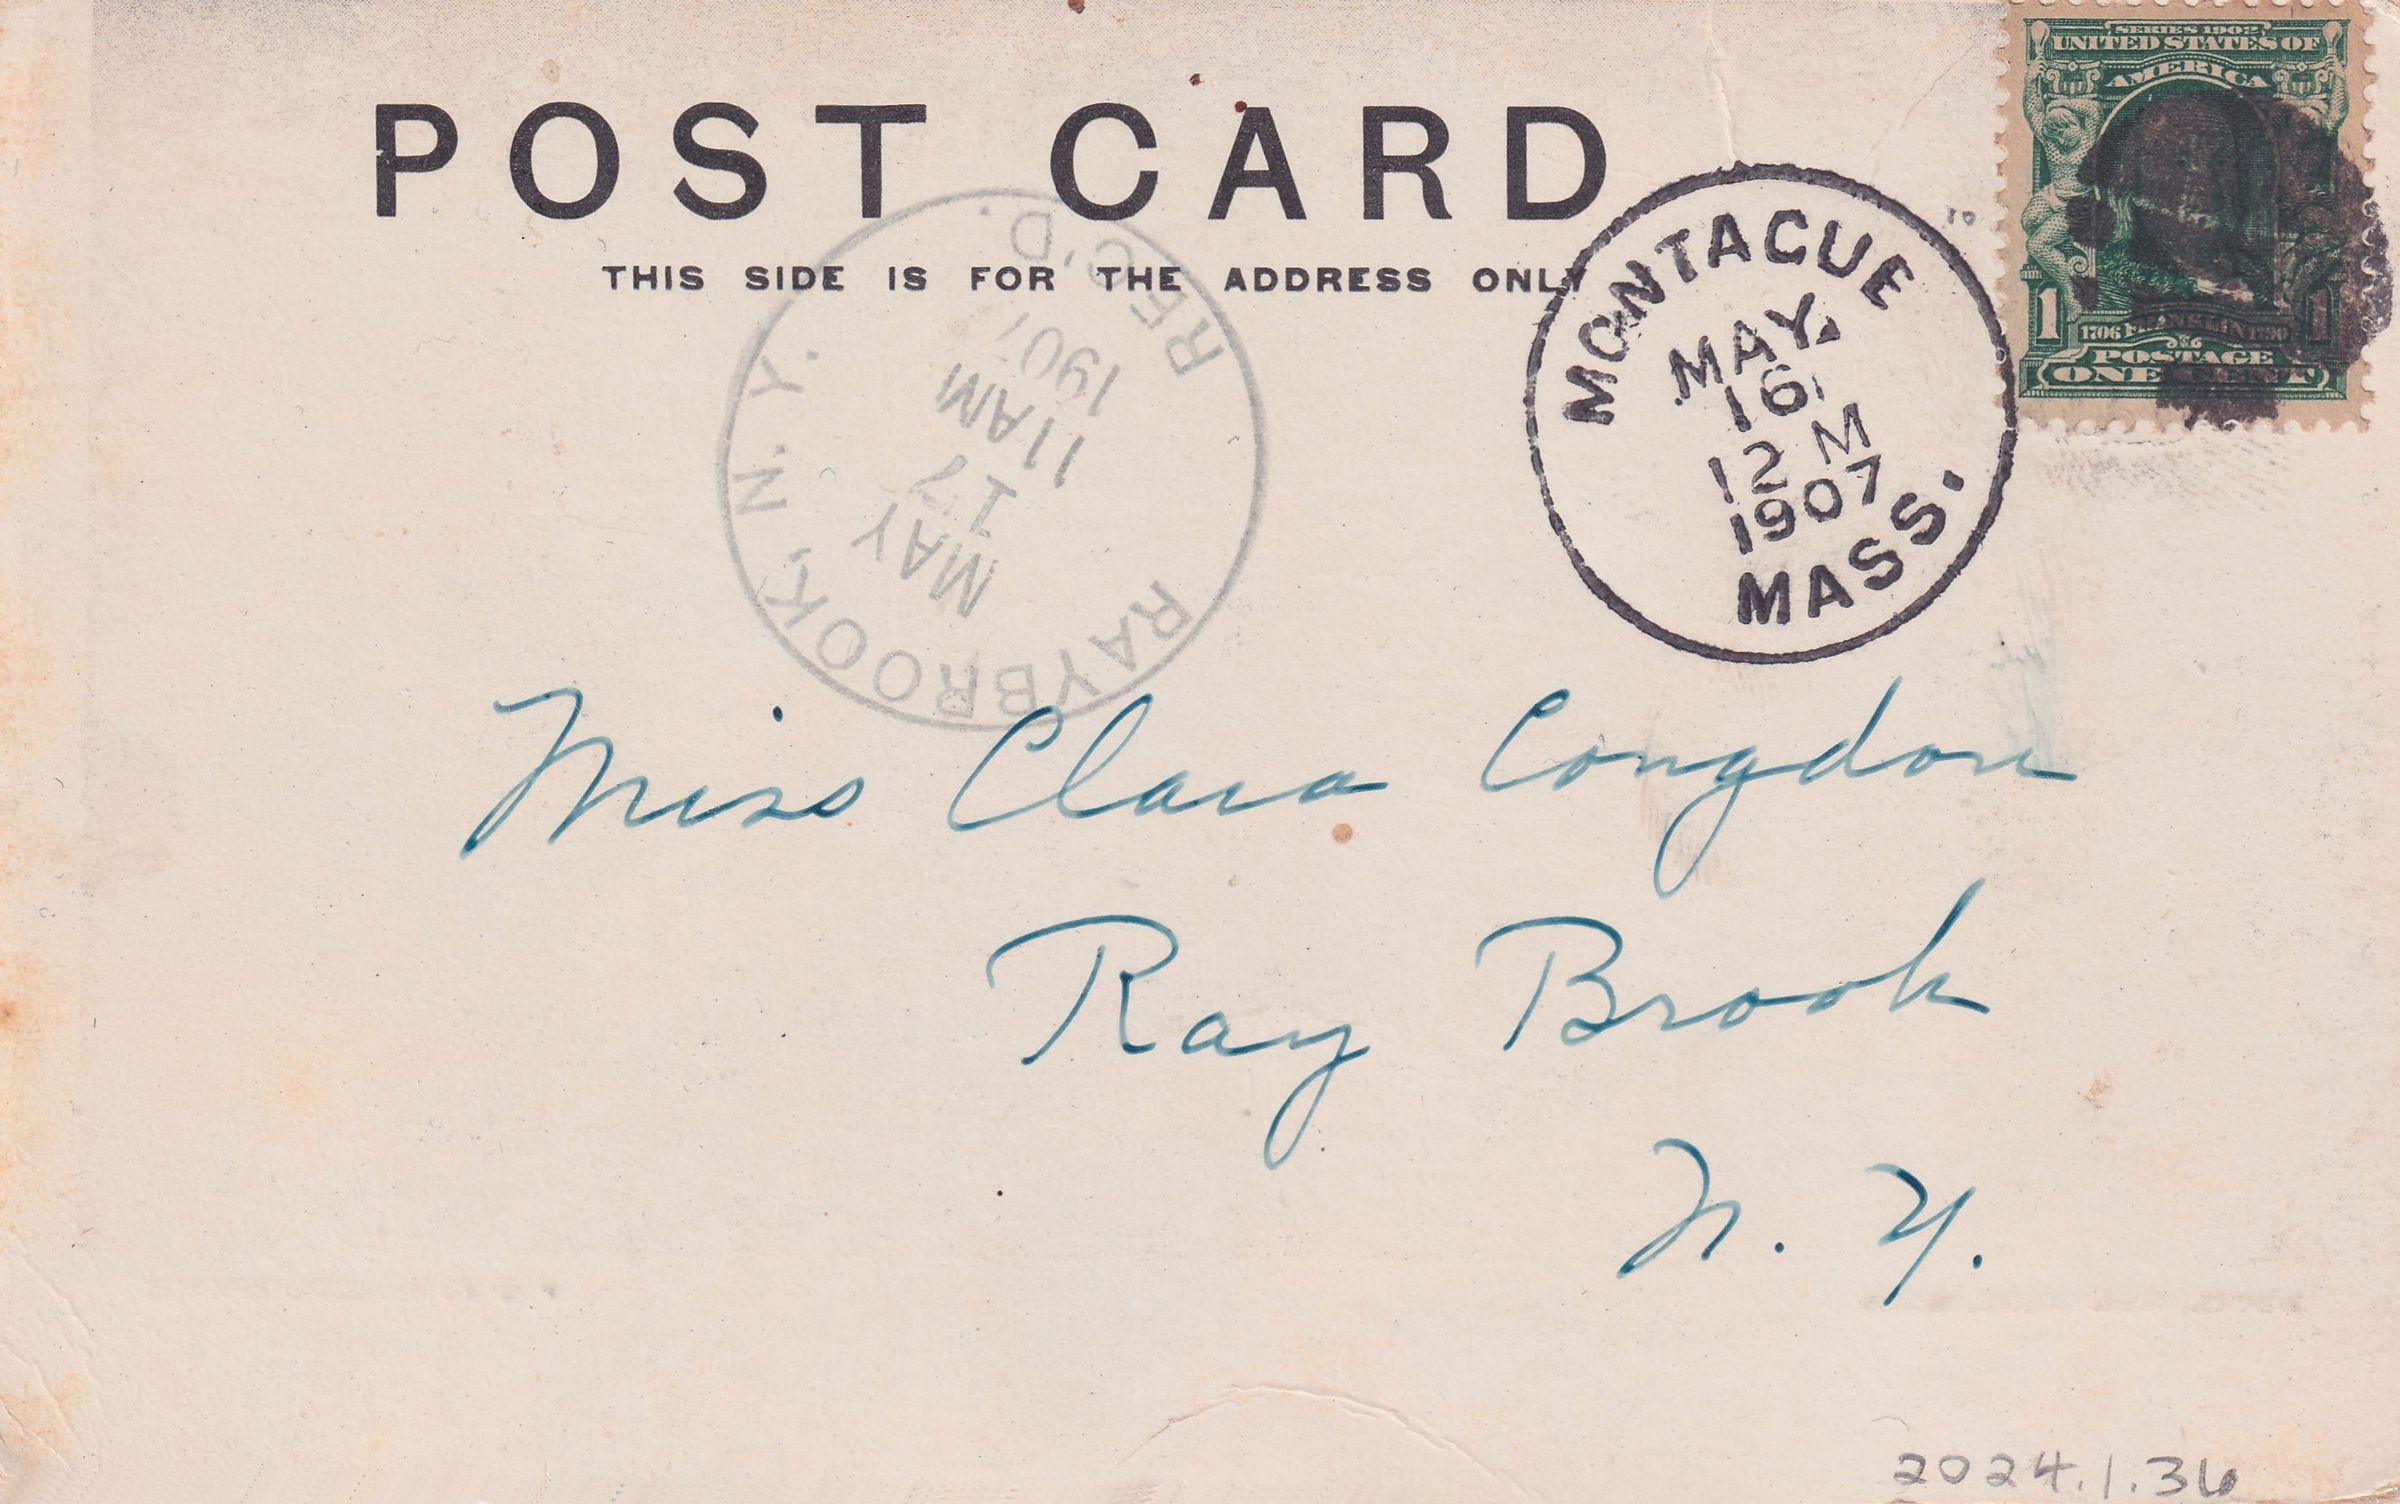 SERIES 1902
UNITED STATES OF
AMERICA
POST CARD
THIS SIDE IS FOR THE ADDRESS ONLY
MONTAGUE
MAY
16
12 M
1907
MASS.
1 1
1706 FRANKLIN 1790
POSTAGE
ONE CENT
RAYBROOK, N. Y.
MAY
17
11 AM
1907
REC'D.
Miss Clara Congdon
Ray Brook
N. Y.
2024.1.36